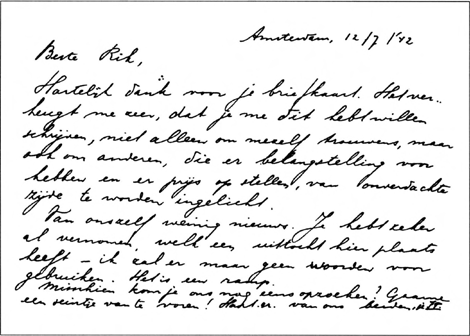 Amsterdam, 12/7 1'42
Beste Rik,
Hartelijk dank voor je briefkaart. Het ver..
heugt me zeer, dat je me dit hebt willen
schrijven, niet alleen om mezelf trouwens, maar
ook om anderen, die er belangstelling voor
hebben en er prijs op stellen, van onverdachte
zijde te worden ingelicht.
Van onszelf weinig nieuws. Je hebt zeker
al vernomen, welk een uittocht hier plaats
heeft – ik zal er maar geen woorden voor
gebruiken. Het is een ramp.
Misschien kom je ons nog eens opzoeken? Gaarne
een seintje van te voren! Hart. gr. van ons